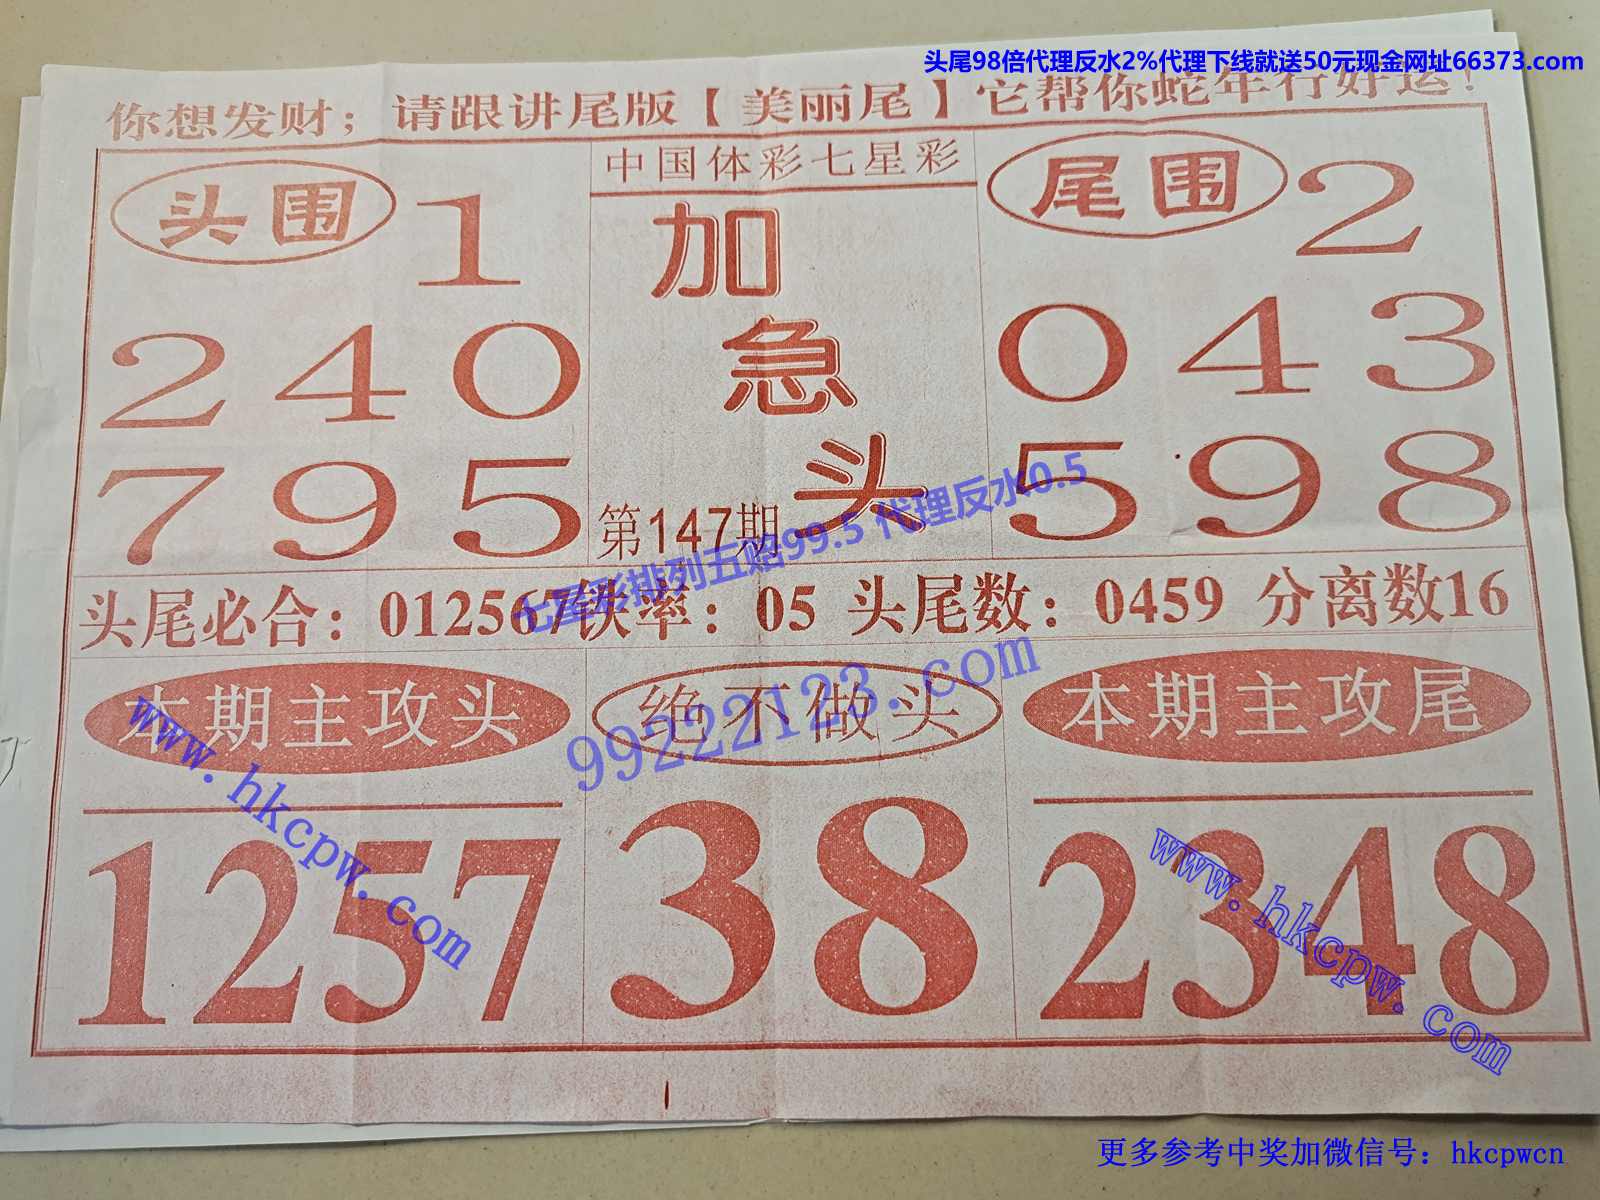 头尾98倍代理反水2%代理下线就送50元现金网址66373.com
你想发财；请跟讲尾版【美丽尾】它帮你蛇年行好运！
中国体彩七星彩
头围 1
2 4 0
7 9 5
加
急
头
第147期
尾围 2
0 4 3
5 9 8
七星彩排列五赔99.5 代理反水0.5
头尾必合：012567铁率：05 头尾数：0459 分离数16
99222123.com
本期主攻头
1257
绝不做头
38
本期主攻尾
2348
www.hkcpw.com
www.hkcpw.com
更多参考中奖加微信号：hkcpwcn